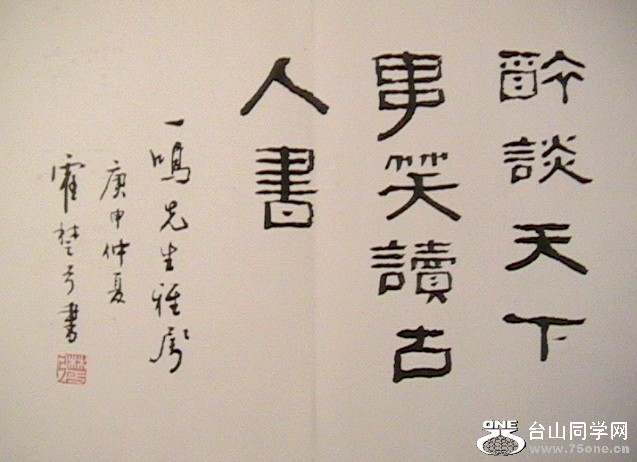 醉談天下
事笑讀古
人書
一鳴先生雅屬
庚申仲夏
霍楚兮書
ONE
台山同学网
www.75one.cn